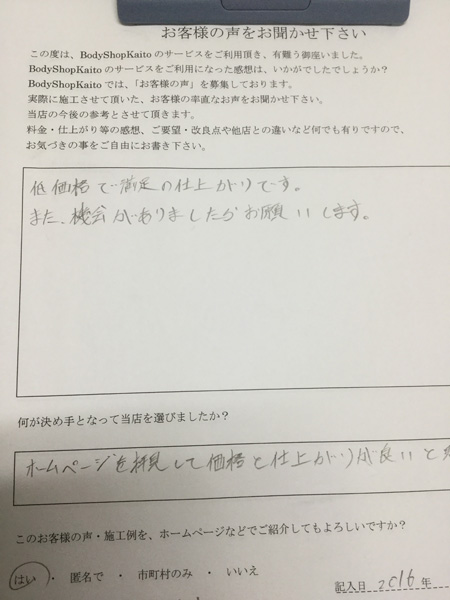 お客様の声をお聞かせ下さい
この度は、BodyShopKaitoのサービスをご利用頂き、有難う御座いました。
BodyShopKaitoのサービスをご利用になった感想は、いかがでしたでしょうか？
BodyShopKaitoでは、「お客様の声」を募集しております。
実際に施工させて頂いた、お客様の率直なお声をお聞かせ下さい。
当店の今後の参考とさせて頂きます。
料金・仕上がり等の感想、ご要望・改良点や他店との違いなど何でも有りですので、
お気づきの事をご自由にお書き下さい。
低価格で満足の仕上がりです。
また、機会がありましたがお願いします。
何が決め手となって当店を選びましたか？
ホームページを拝見して価格と仕上がりが良いと
このお客様の声・施工例を、ホームページなどでご紹介してもよろしいですか？
はい ・ 匿名で ・ 市町村のみ ・ いいえ
記入日 2016年